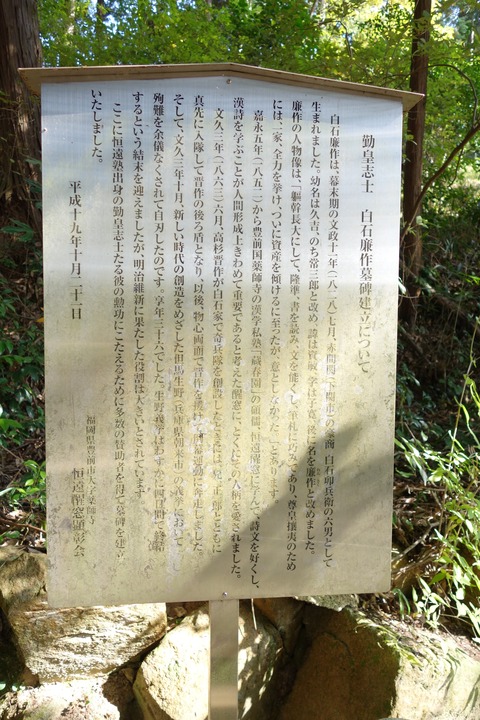 勤皇志士　白石廉作墓碑建立について
白石廉作は、幕末期の文政十一年（一八二八）七月、赤間関（下関市）の豪商、白石卯兵衛の六男として
生まれました。幼名は久吉、のち常三郎と改め、諱は資敏、字は子寛、後に名を廉作と改めました。
廉作の人物像は、「軀幹長大にして、隆準、書を読み、文を能くし、筆札に巧みであり、尊皇攘夷のため
には一家、全力を挙げ、ついに資産を傾けるに至ったが、意としなかった」とあります。
嘉永五年（一八五二）から豊前国薬師寺の漢学私塾「蔵春園」の師儒、恒遠醒窓に学んで、詩文を好くし、
漢詩を学ぶことが人間形成上きわめて重要であると考えた醒窓に、とくにその人柄を愛されました。
文久三年（一八六三）六月、高杉晋作が白石家で奇兵隊を創設したときには、兄、正一郎とともに
真先に入隊して晋作の後ろ盾となり、以後、物心両面で晋作を援け、
そして、文久三年十月、新しい時代の創造をめざした但馬生野（兵庫県朝来市）の義挙において
殉難を余儀なくされて自刃したのです。享年三十六でした。生野義挙はわずか四日間で終結
するという結末を迎えましたが、明治維新に果たした役割は大きいとされています。
ここに恒遠塾出身の勤皇志士たる彼の勲功にこたえるために多数の賛助者を得て墓碑を建立
いたしました。
平成十九年十月二十二日
福岡県豊前市大字薬師寺
恒遠醒窓顕彰会